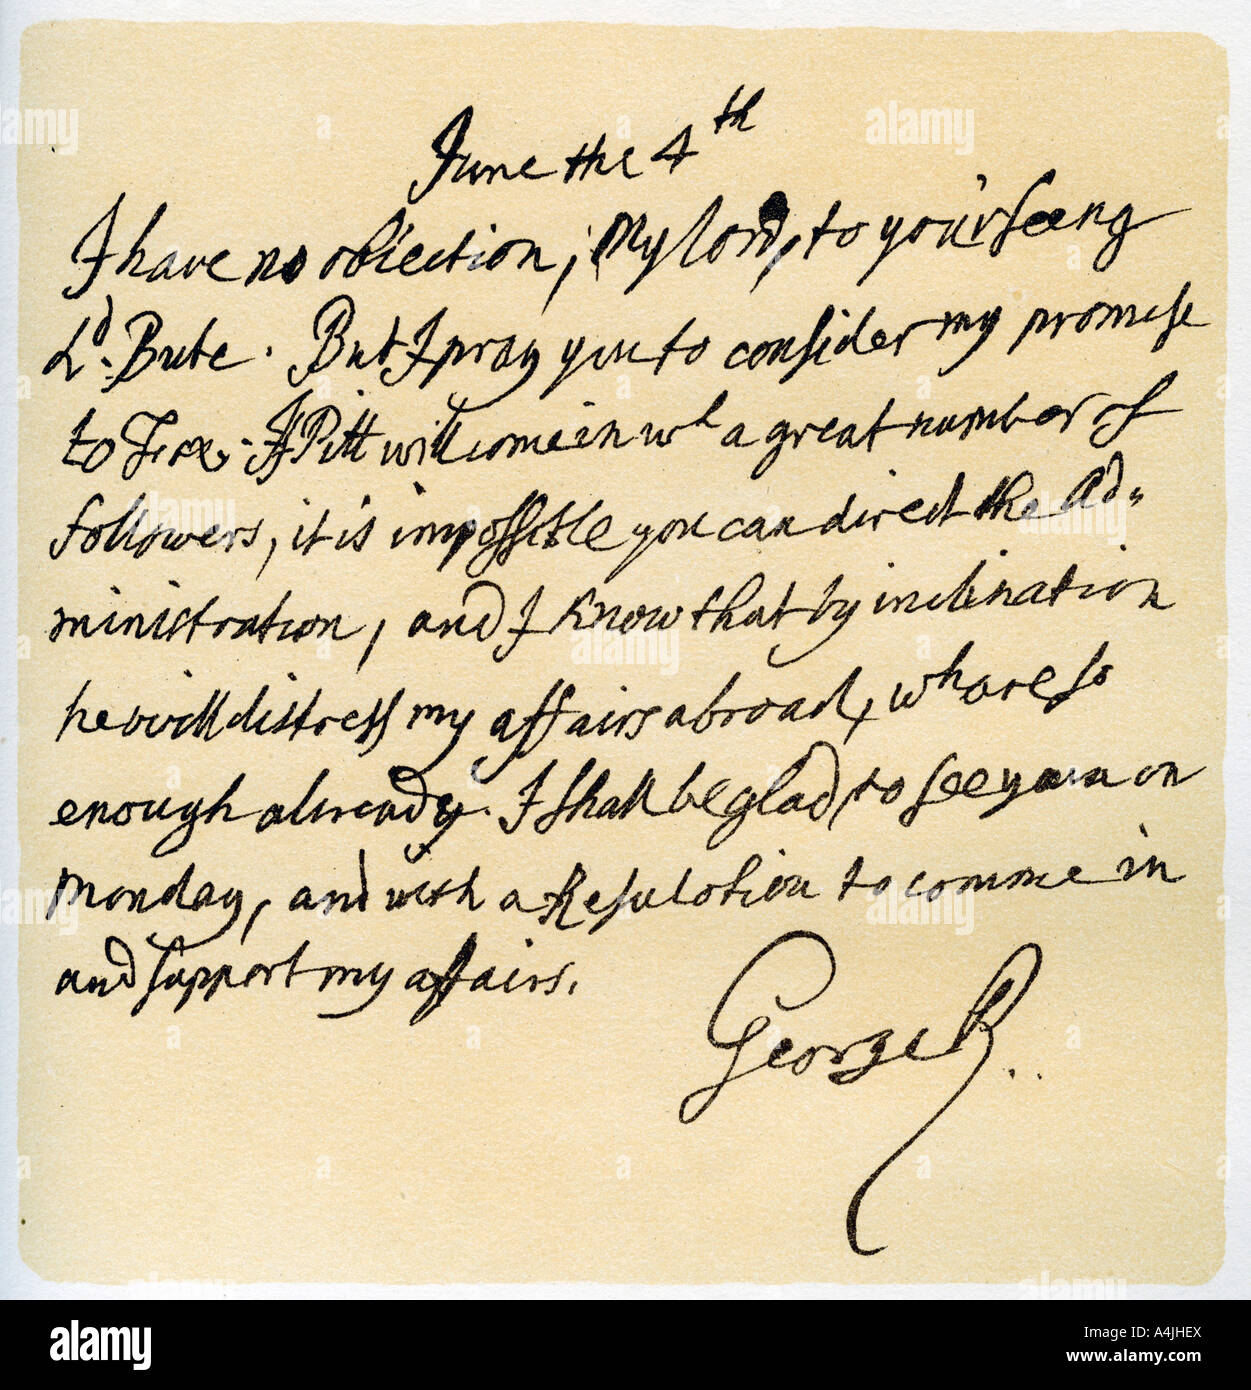 June the 4th
I have no obiection, My lord, to your seeing
Ld. Bute. But I pray you to consider my promise
to Fox. If Pitt will come in wh a great number of
followers, it is impossible you can direct the Ad„
ministration, and I know that by inclination
he will distress my affairs abroad, wh are so
enough already. I shall be glad to see you on
Monday, and with a Resulotion to comme in
and support my affairs.
George R.
alamy
Image ID: A4JHEX
www.alamy.com